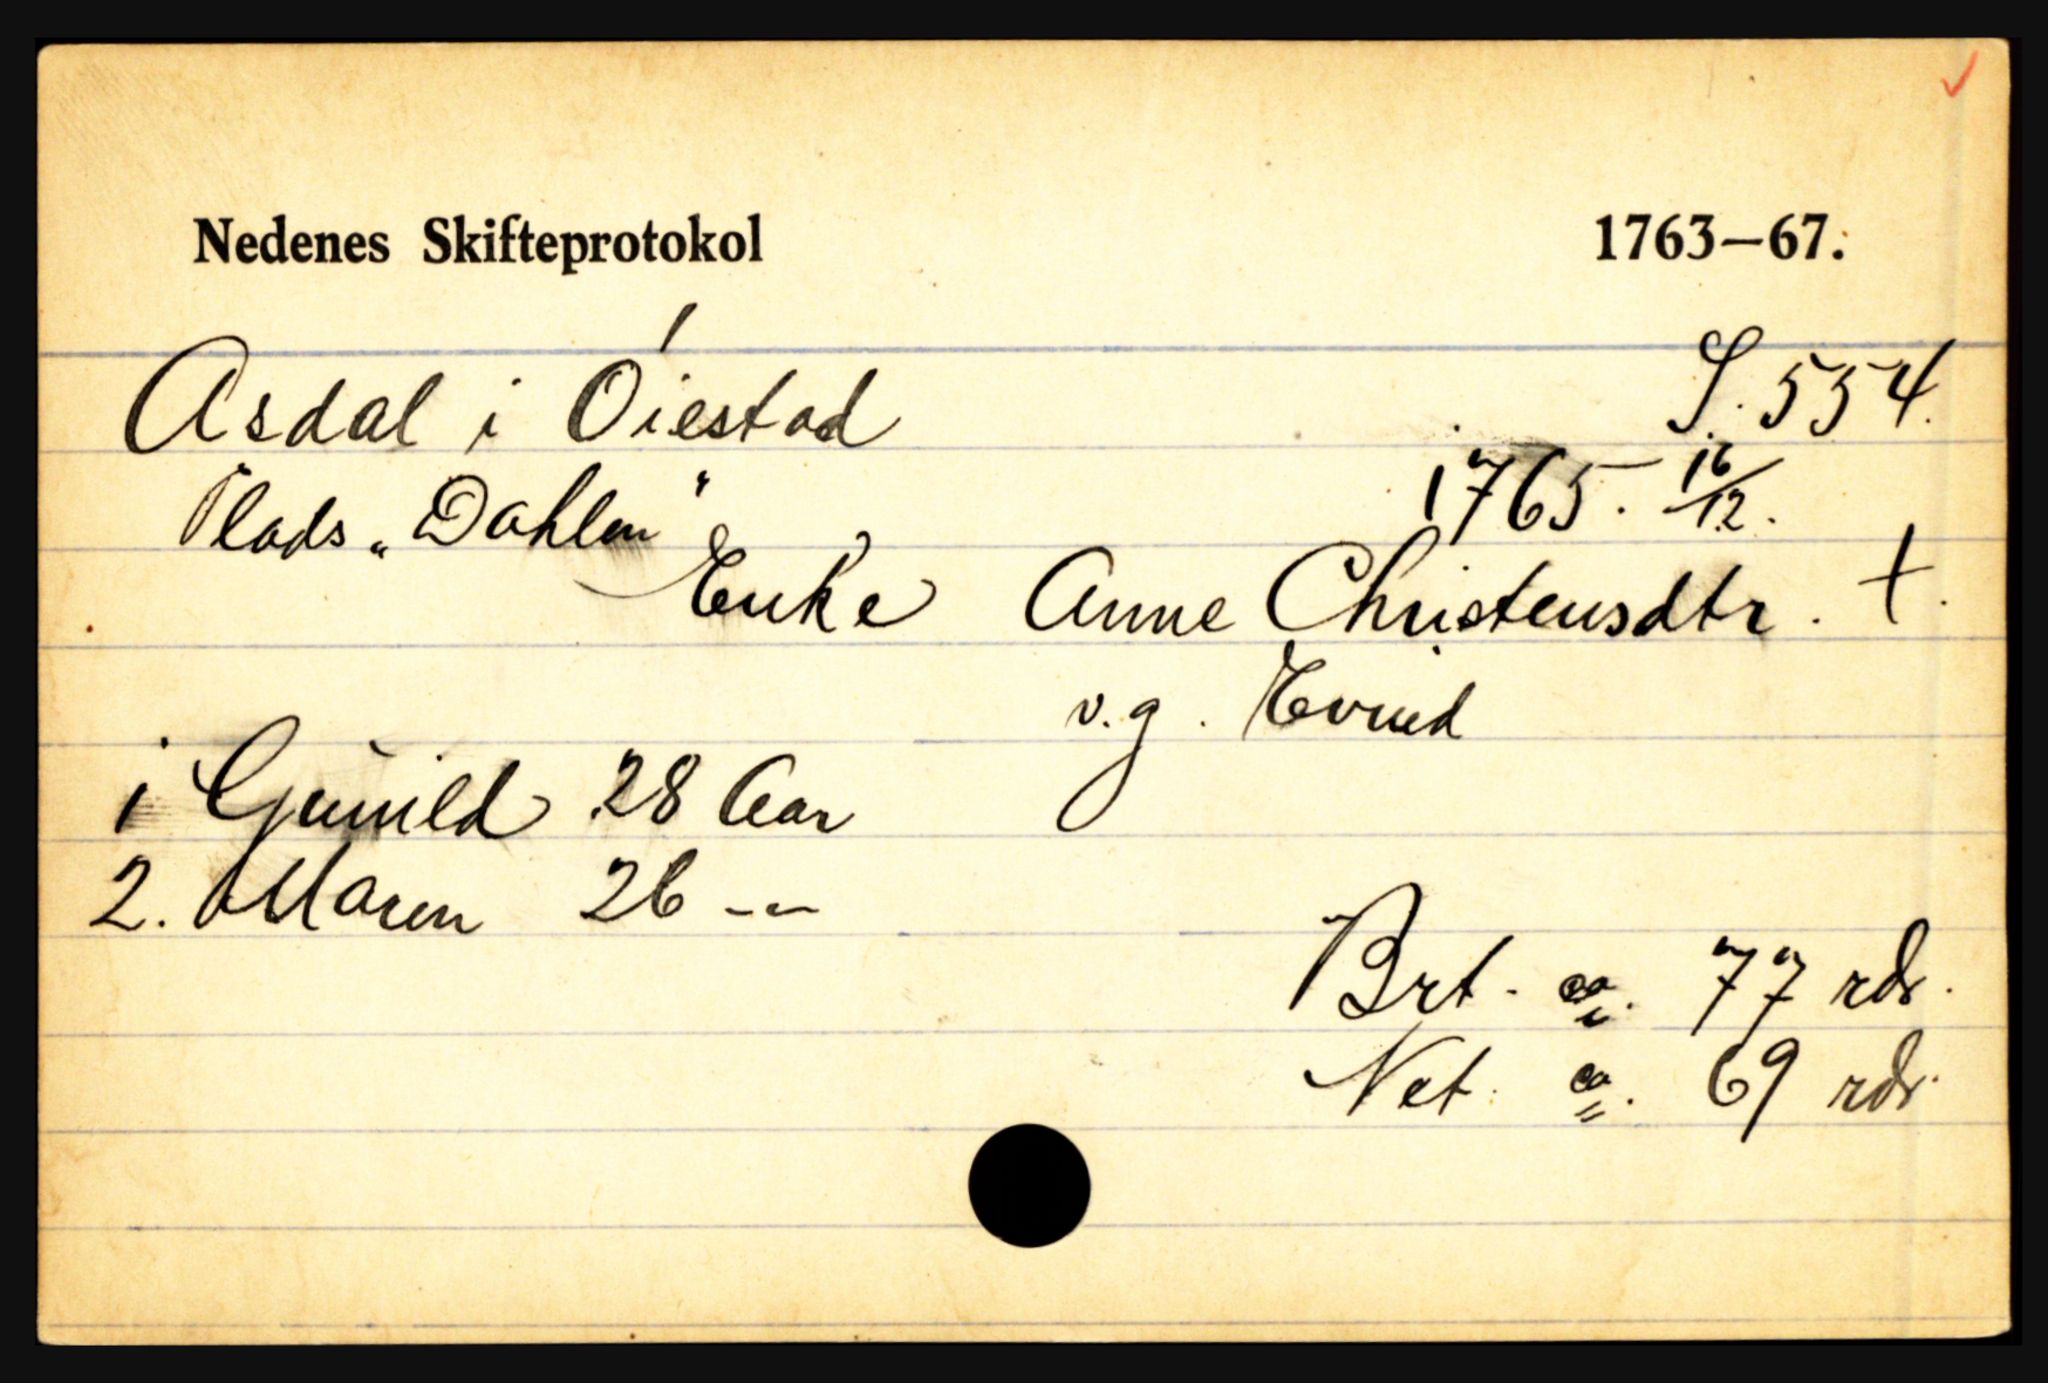 Nedenes Skifteprotokol 1763—67.
Asdal i Øiestad S. 554.
Plads „Dahlen" 1765. 16/12.
Enke Anne Christensdtr. †.
v.g. Evind
1 Gunild 28 Aar
2. Maren 26 -"-
Brt. ca. 77 rdr.
Net. ca. 69 rdr.